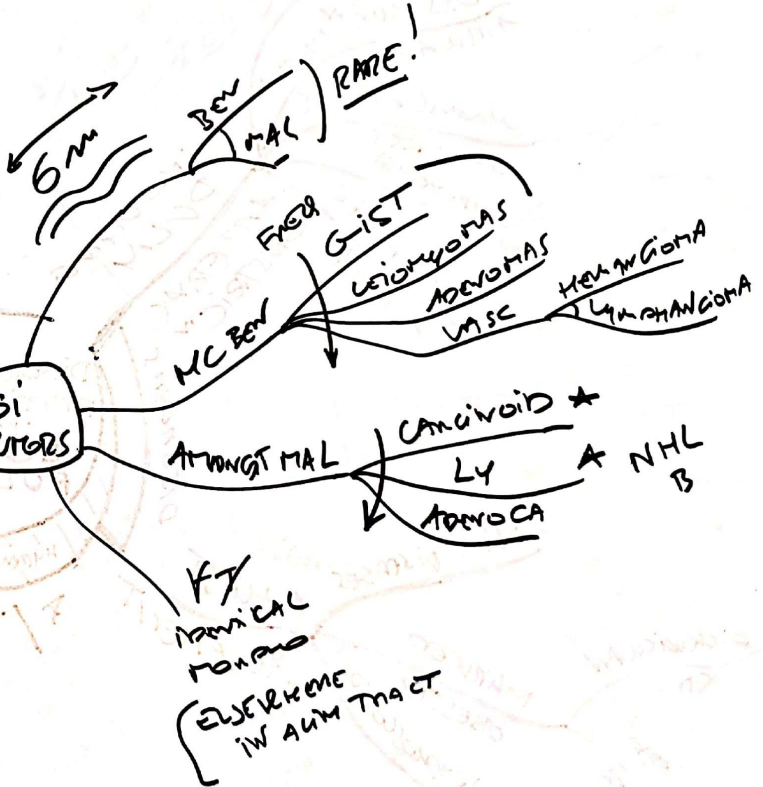 6 m
BEN
MAL
RARE!
FREQ
GIST
LEIOMYOMAS
ADENOMAS
VASC
HEMANGIOMA
LYMPHANGIOMA
MC BEN
SI
TUMORS
AMONGST MAL
CARCINOID ★
LY ★ NHL
B
ADENOCA
∀ T
IDENTICAL
MORPHO
ELSEWHERE
IN ALIM TRACT